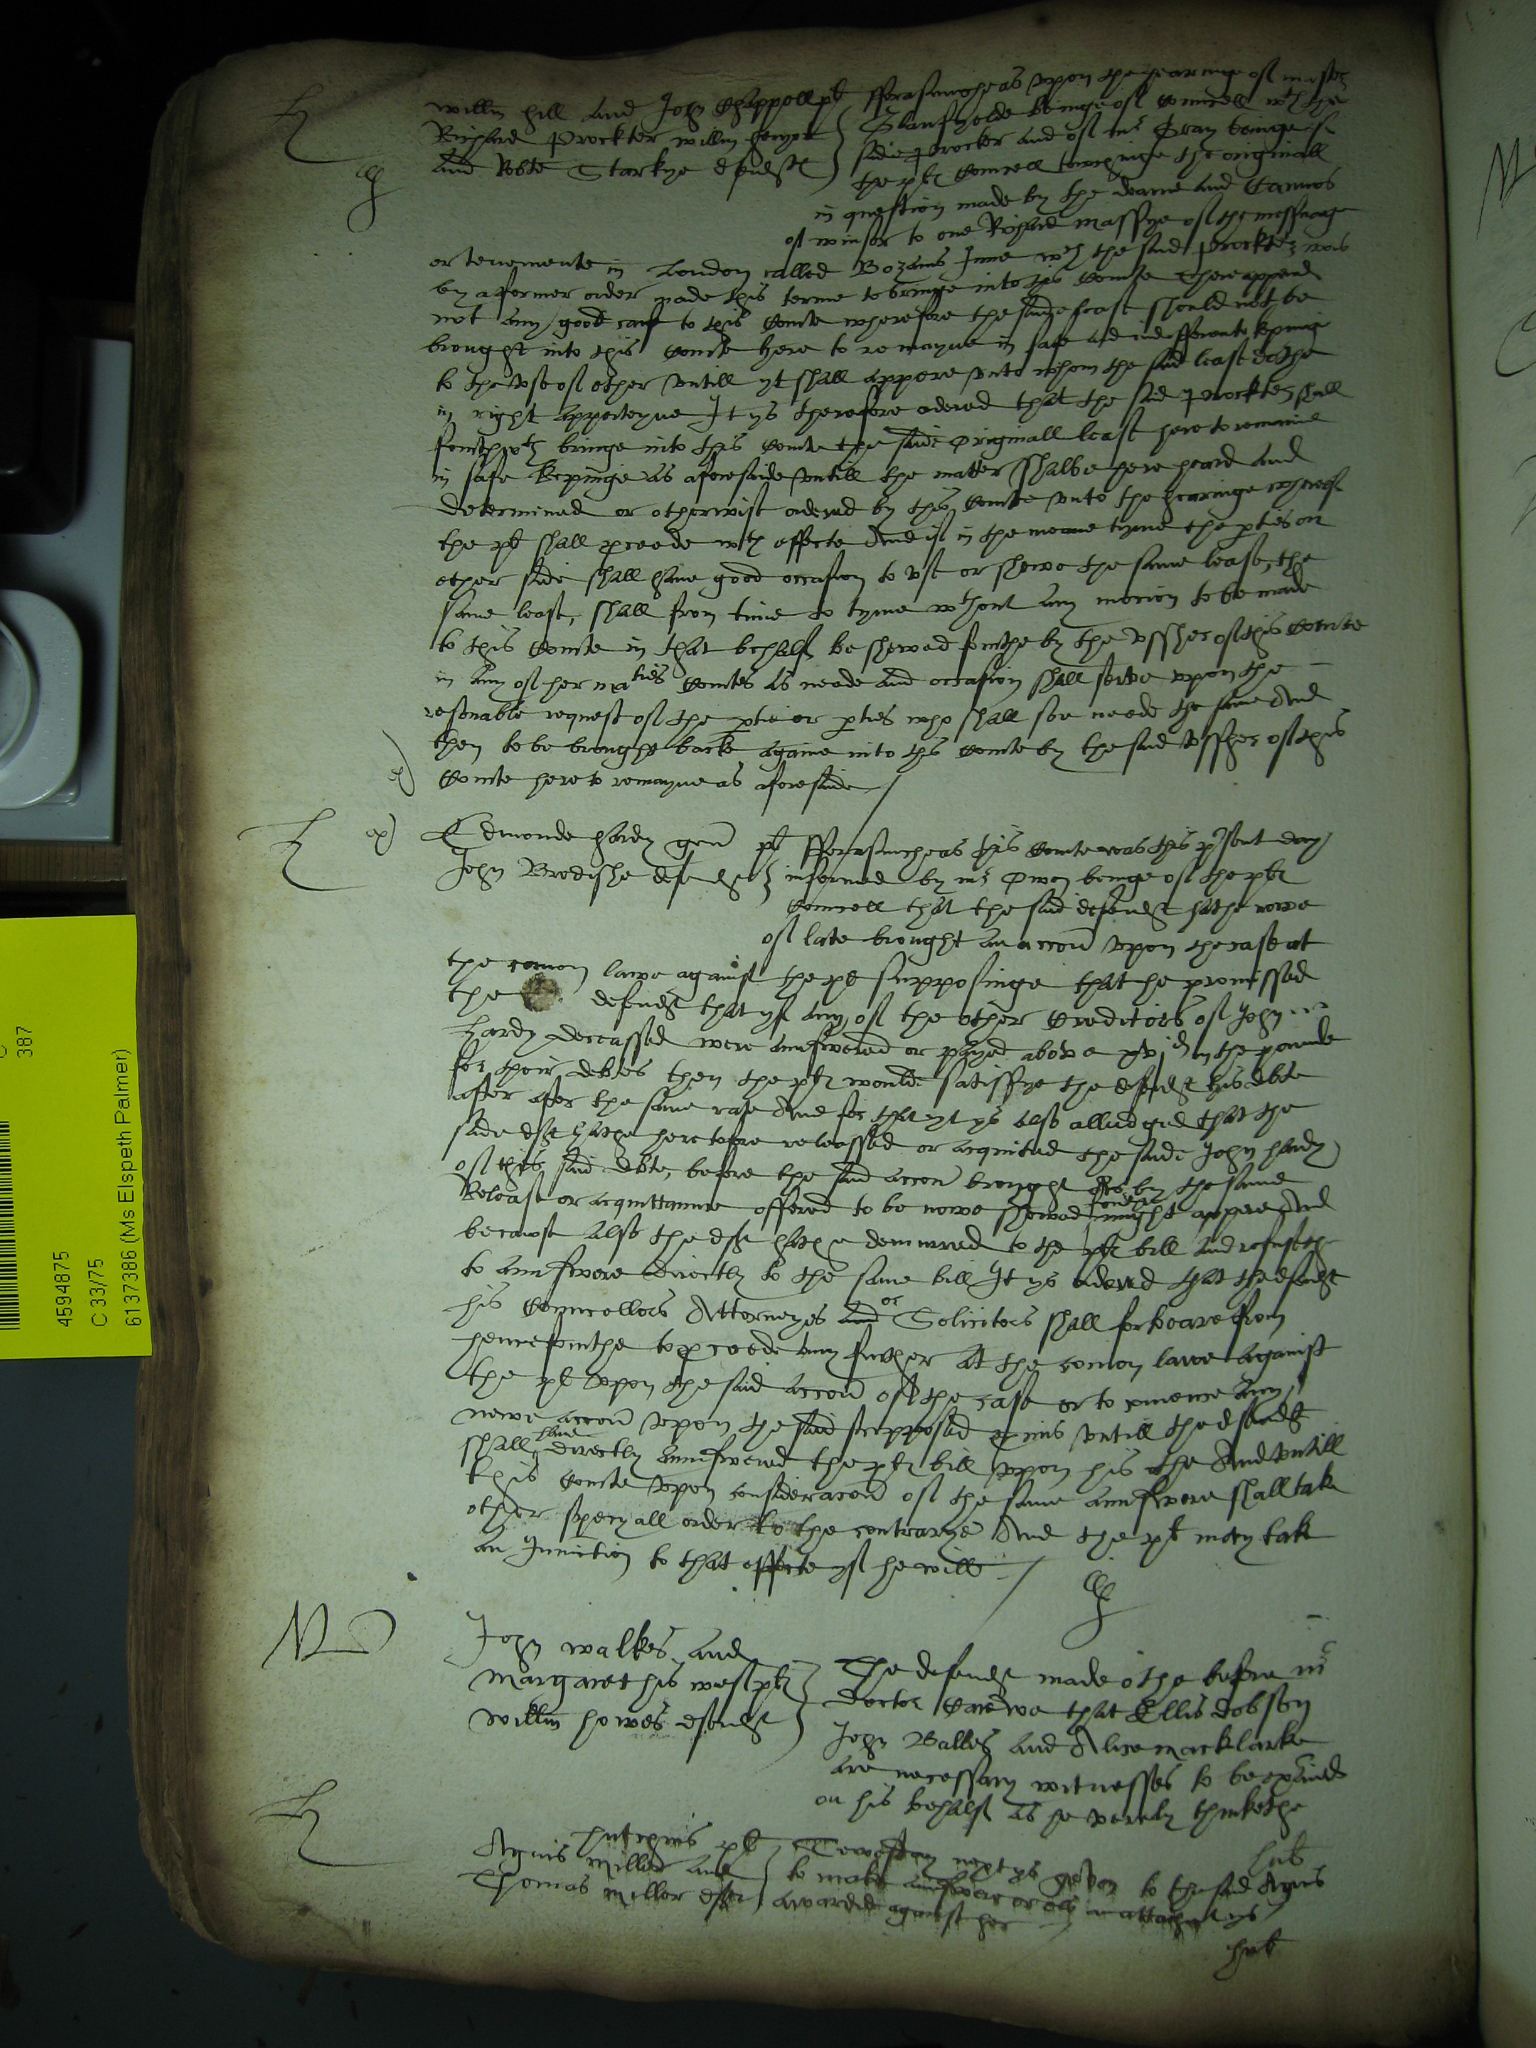 willm hill and John Chappell plt fforasmocheas upon the hearinge of master
Richard Prockter willm
and Robte Starkye defendtes
beinge of Councell wth the
said Procter and of mr beinge of
the pltes Councell towchinge the originall
in question made by the deane and Cannons
of winsor to one Richard massye of the messuage
or tenemente in London called Bozams Inne wch the said Prockter was
by a former order made this terme to bringe into this Courte there appered
not any good cause to this Courte wherefore the saide lease should not be
brought into this Courte here to remayne in safe and indifferente kepinge
to the use of other untill yt shall appere unto whom the said lease dothe
in right apperteyne It ys therefore ordered that the said Prockter shall
forthwth bringe into this Courte the saide originall lease here to remaine
in safe kepinge as aforesaide untill the matter shalbe here heard and
determined or otherwise ordered by this Courte unto the hearinge whereof
the plt shall procede wth effecte And if in the meane tyme the parties on
ether side shall have good occasion to use or shewe the same lease, the
same lease, shall from time to tyme wthout any mocion to be made
to this Courte in that behalf be shewed fourthe by the ussher of this Courte
in any of her maties Courtes as neede and occasion shall serve upon the
resonable request of the partie or parties who shall soe neede the same And
then to be brought backe againe into this Courte by the said ussher of this
Courte here to remayne as aforesaide
Edmonde hardy gen plt fforasmocheas this Courte was this present day
John Brodishe defendt informed by mr Owen beinge of the pltes
Councell that the said defendt hathe nowe
of late brought an accion upon the case at
the comon lawe against the plt supposinge that he promissed
the defendt that yf any of the other Creditors of John
hardy deceassed were aunswered or payed above xvjd in the pounde
for their debtes then the plt would satisfye the defendt his debte
after the same rate And for that yt ys also alledged that the
said deft hathe heretofore released or acquited the said John hardy
of this said debte, before the said accion brought as by the same
Release or acquittaunce offered to be nowe shewed might appere And
because also the deft hathe demurred to the pltes bill and refuseth
to aunswere directly to the same bill It ys ordered that the defendt
his Councellors Attorneyes and or Solicitors shall forbeare from
hencefourthe to procede any further at the comon lawe against
the plt upon the said accion of the case or to comence any
newe accion upon the said supposed promis untill the defendt
shall have directly aunswered the pltes bill upon his othe And untill
this Courte upon consideracion of the same aunswere shall take
other specyall order to the contrarye And the plt may take
an Iniunction to that effecte yf he will
John walker and
margaret his wief pltes
willm howes defendt
The defendt made othe before mr
doctor Carewe that Ellis dobson
John Balles and Alice macklarke
are necessary witnesses to be examined
on his behalf as he verely thinkethe
hutchins plt
Agnis Miller and
Thomas Miller deftes
Tewesday next ys geven to the said Agnis
to make aunswere or els an attachmt ys
awarded against her
4594875
C 33/75
6137386 (Ms Elspeth Palmer)
387